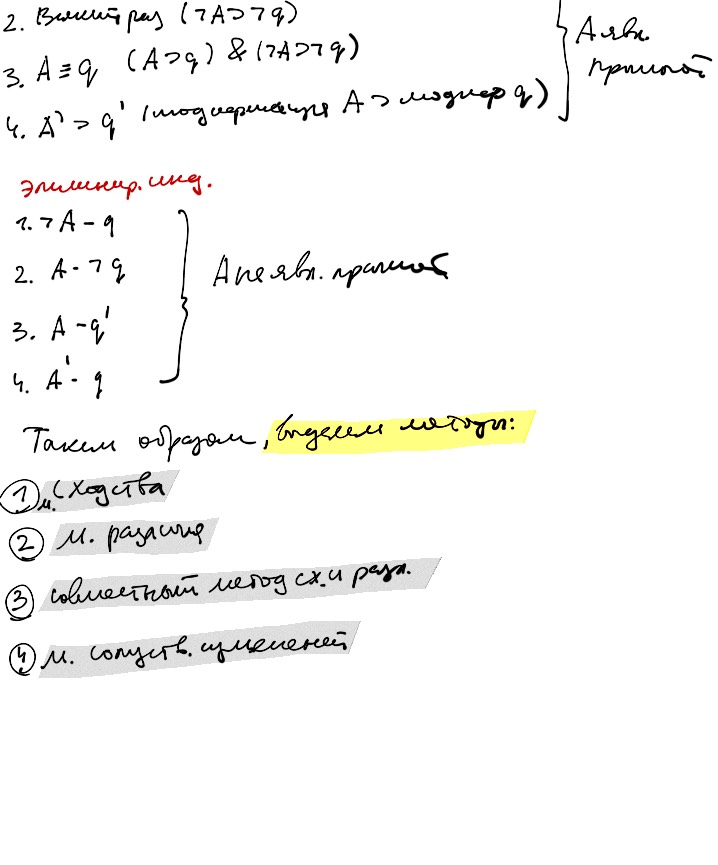 2. Вмест раз (¬A⊃¬q)
3. A≡q (A⊃q) & (¬A⊃¬q)
4. A' ⊃ q' (модификация A ⊃ модифр q)
A явл.
причиной
элиминир. инд.
1. ¬A - q
2. A - ¬q
3. A - q'
4. A' - q
A не явл. причиной
Таким образом, выделяем методы:
① м. сходства
② м. различия
③ совместный метод сх. и разл.
④ м. сопутств. изменений